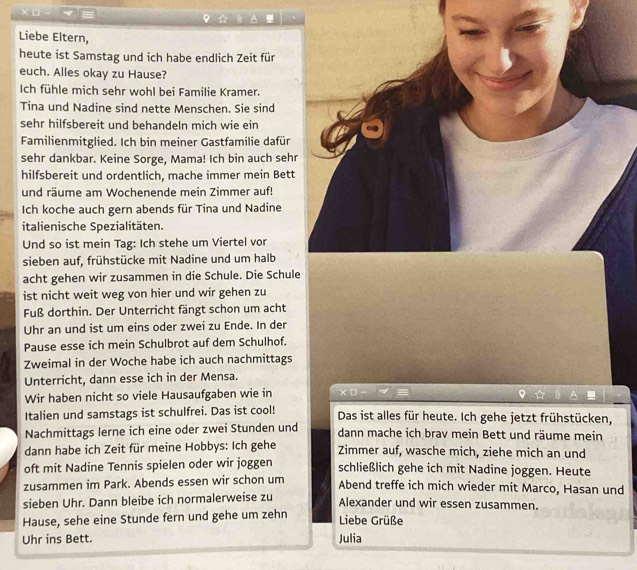 Liebe Eltern,
heute ist Samstag und ich habe endlich Zeit für
euch. Alles okay zu Hause?
Ich fühle mich sehr wohl bei Familie Kramer.
Tina und Nadine sind nette Menschen. Sie sind
sehr hilfsbereit und behandeln mich wie ein
Familienmitglied. Ich bin meiner Gastfamilie dafür
sehr dankbar. Keine Sorge, Mama! Ich bin auch sehr
hilfsbereit und ordentlich, mache immer mein Bett
und räume am Wochenende mein Zimmer auf!
Ich koche auch gern abends für Tina und Nadine
italienische Spezialitäten.
Und so ist mein Tag: Ich stehe um Viertel vor
sieben auf, frühstücke mit Nadine und um halb
acht gehen wir zusammen in die Schule. Die Schule
ist nicht weit weg von hier und wir gehen zu
Fuß dorthin. Der Unterricht fängt schon um acht
Uhr an und ist um eins oder zwei zu Ende. In der
Pause esse ich mein Schulbrot auf dem Schulhof.
Zweimal in der Woche habe ich auch nachmittags
Unterricht, dann esse ich in der Mensa.
Wir haben nicht so viele Hausaufgaben wie in
Italien und samstags ist schulfrei. Das ist cool!
Nachmittags lerne ich eine oder zwei Stunden und
dann habe ich Zeit für meine Hobbys: Ich gehe
oft mit Nadine Tennis spielen oder wir joggen
zusammen im Park. Abends essen wir schon um
sieben Uhr. Dann bleibe ich normalerweise zu
Hause, sehe eine Stunde fern und gehe um zehn
Uhr ins Bett.
Das ist alles für heute. Ich gehe jetzt frühstücken,
dann mache ich brav mein Bett und räume mein
Zimmer auf, wasche mich, ziehe mich an und
schließlich gehe ich mit Nadine joggen. Heute
Abend treffe ich mich wieder mit Marco, Hasan und
Alexander und wir essen zusammen.
Liebe Grüße
Julia